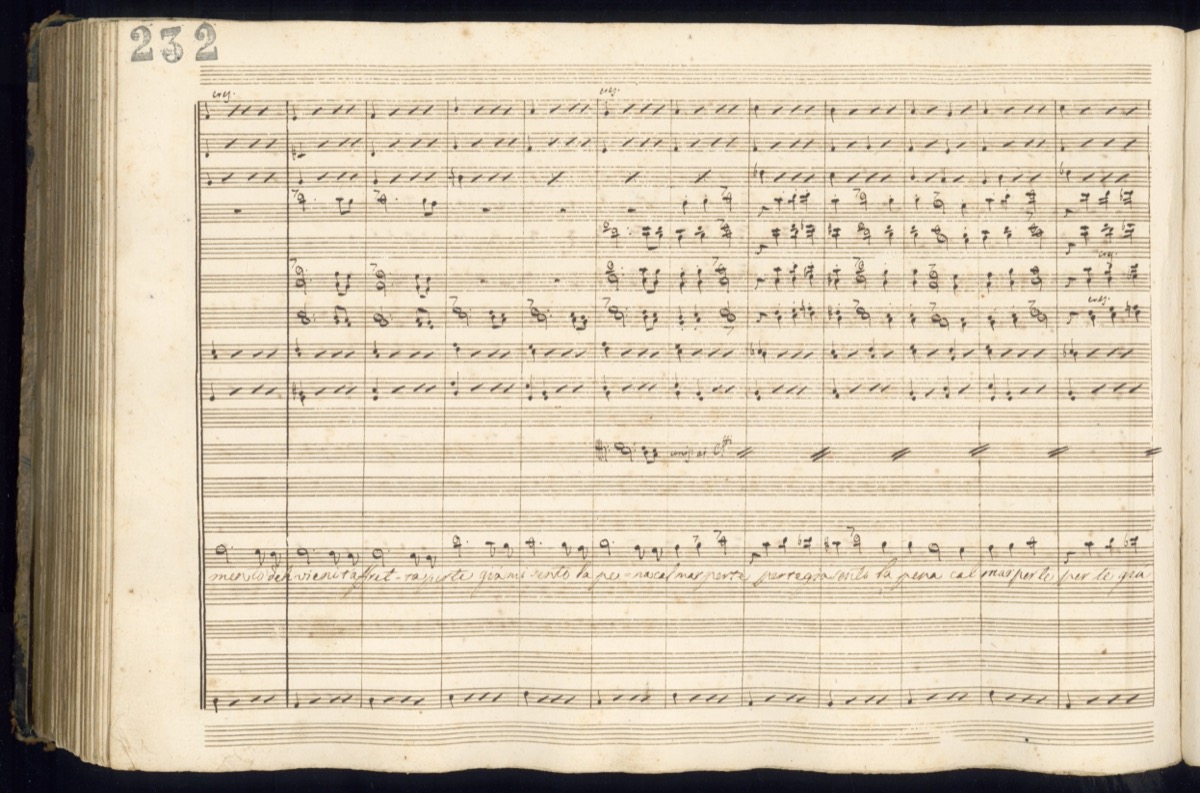 232
cres. cres.
cres.
cres.
unis ai Cni
mento deh vieni t'affret-ta per te già mi sento la pe-na cal mar per te per te già sento la pena cal mar per te per te già